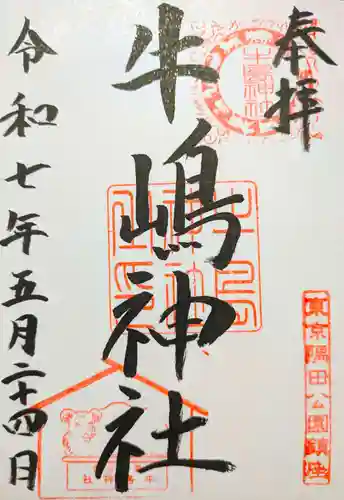 奉拝
牛嶋神社
令和七年五月二十四日
牛嶋神社
東京隅田公園鎮座